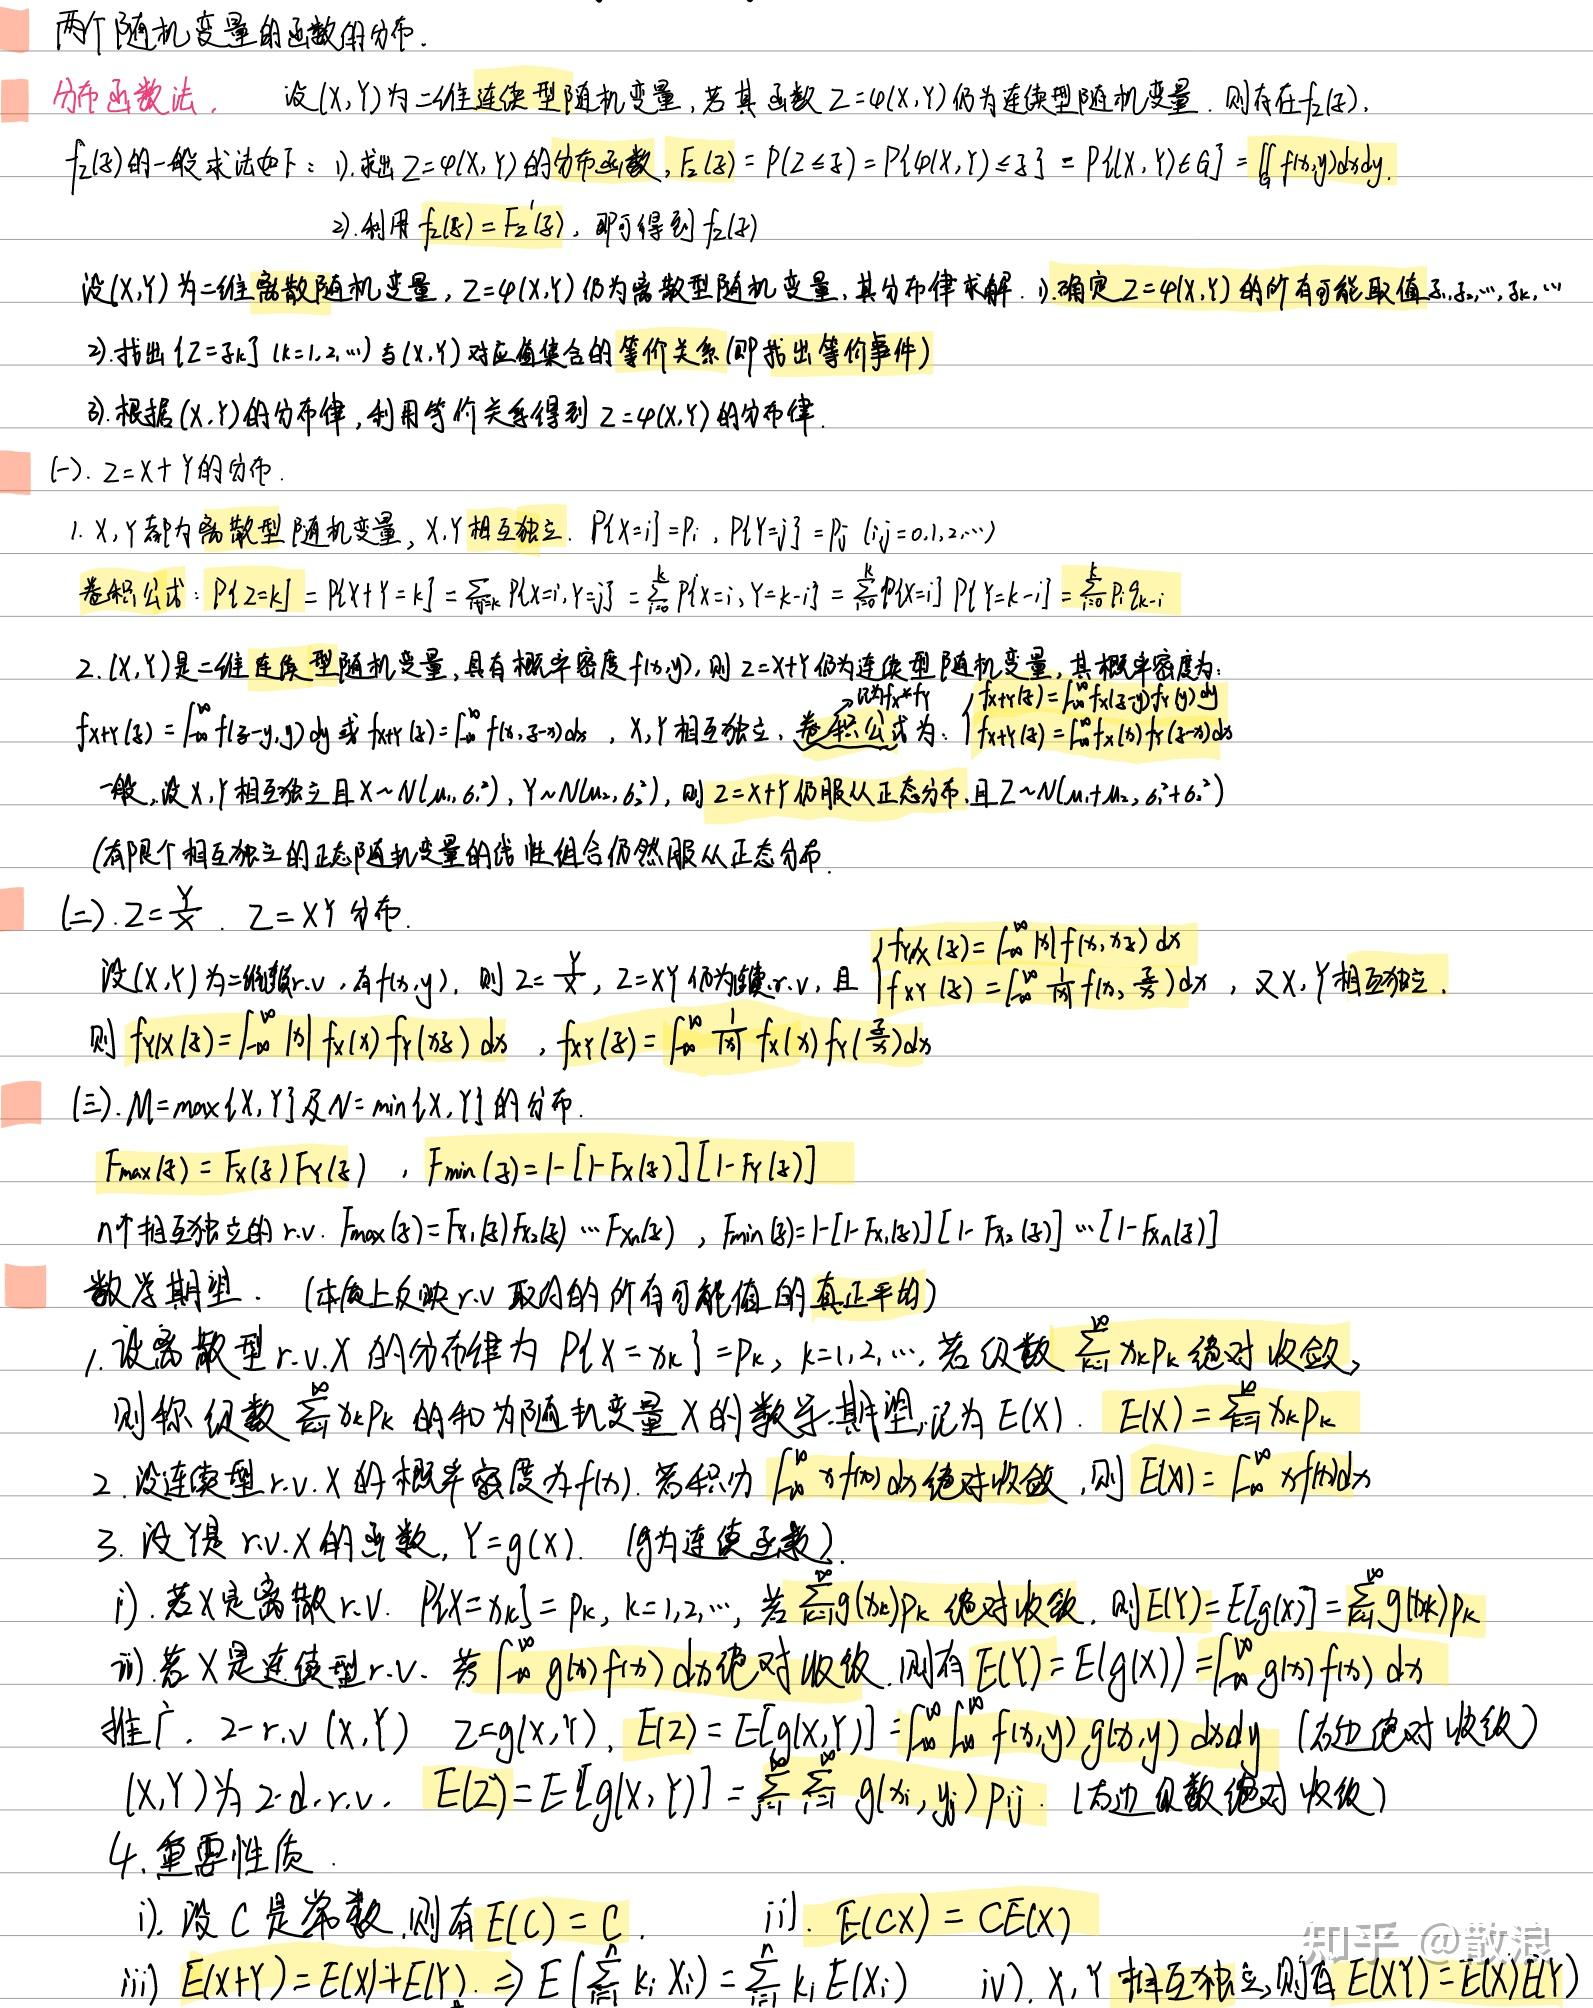 两个随机变量的函数的分布.
分布函数法. 设(X,Y)为二维连续型随机变量,若其函数Z=φ(X,Y)仍为连续型随机变量.则存在f_Z(z).
f_Z(z)的一般求法如下: 1).求出Z=φ(X,Y)的分布函数, F_Z(z)=P(Z≤z)=P{φ(X,Y)≤z}=P{(X,Y)∈G}=∬_G f(x,y)dxdy.
2).利用f_Z(z)=F_Z'(z), 即可得到f_Z(z)
设(X,Y)为二维离散随机变量,Z=φ(X,Y)仍为离散型随机变量,其分布律求解. 1).确定Z=φ(X,Y)的所有可能取值z₁,z₂,…,z_k,…
2).找出{Z=z_k}(k=1,2,…)与(X,Y)对应值集合的等价关系(即找出等价事件)
3).根据(X,Y)的分布律,利用等价关系得到Z=φ(X,Y)的分布律.
(一). Z=X+Y的分布.
1. X,Y都为离散型随机变量, X,Y相互独立. P{X=i}=P_i, P{Y=j}=P_j (i,j=0,1,2,…)
卷积公式: P{Z=k}=P{X+Y=k}=∑_{i+j=k} P{X=i,Y=j}=∑_{i=0}^k P{X=i,Y=k-i}=∑_{i=0}^k P{X=i}P{Y=k-i}=∑_{i=0}^k P_i q_{k-i}
2. (X,Y)是二维连续型随机变量,具有概率密度f(x,y),则Z=X+Y仍为连续型随机变量,其概率密度为:
f_{X+Y}(z)=∫_{-∞}^{∞} f(z-y,y)dy 或 f_{X+Y}(z)=∫_{-∞}^{∞} f(x,z-x)dx, X,Y相互独立, 卷积公式为: 记为f_X*f_Y { f_{X+Y}(z)=∫_{-∞}^{∞} f_X(z-y)f_Y(y)dy
f_{X+Y}(z)=∫_{-∞}^{∞} f_X(x)f_Y(z-x)dx
一般,设X,Y相互独立且X~N(μ₁,σ₁²), Y~N(μ₂,σ₂²), 则Z=X+Y仍服从正态分布,且Z~N(μ₁+μ₂,σ₁²+σ₂²)
(有限个相互独立的正态随机变量的线性组合仍然服从正态分布.
(二). Z=Y/X. Z=XY分布.
设(X,Y)为二维连续r.v,有f(x,y), 则Z=Y/X, Z=XY仍为连续r.v,且 { f_{Y/X}(z)=∫_{-∞}^{∞} |x|f(x,xz)dx
f_{XY}(z)=∫_{-∞}^{∞} 1/|x| f(x,z/x)dx, 又X,Y相互独立.
则 f_{Y/X}(z)=∫_{-∞}^{∞} |x|f_X(x)f_Y(xz)dx, f_{XY}(z)=∫_{-∞}^{∞} 1/|x| f_X(x)f_Y(z/x)dx
(三). M=max{X,Y}及N=min{X,Y}的分布.
F_max(z)=F_X(z)F_Y(z), F_min(z)=1-[1-F_X(z)][1-F_Y(z)]
n个相互独立的r.v. F_max(z)=F_{X₁}(z)F_{X₂}(z)…F_{Xn}(z), F_min(z)=1-[1-F_{X₁}(z)][1-F_{X₂}(z)]…[1-F_{Xn}(z)]
数学期望. (本质上反映r.v取得的所有可能值的真正平均)
1.设离散型r.v.X的分布律为P{X=x_k}=P_k, k=1,2,…,若级数∑_{k=1}^∞ x_kP_k绝对收敛,
则称级数∑_{k=1}^∞ x_kP_k的和为随机变量X的数学期望,记为E(X). E(X)=∑_{k=1}^∞ x_kP_k
2.设连续型r.v.X的概率密度为f(x).若积分∫_{-∞}^{∞} xf(x)dx绝对收敛,则E(X)=∫_{-∞}^{∞} xf(x)dx
3.设Y是r.v.X的函数, Y=g(X). (g为连续函数).
i).若X是离散r.v. P{X=x_k}=P_k, k=1,2,…,若∑_{k=1}^∞ g(x_k)P_k绝对收敛.则E(Y)=E[g(X)]=∑_{k=1}^∞ g(x_k)P_k
ii).若X是连续型r.v.若∫_{-∞}^{∞} g(x)f(x)dx绝对收敛.则有E(Y)=E(g(X))=∫_{-∞}^{∞} g(x)f(x)dx
推广. 2-r.v(X,Y) Z=g(X,Y), E(Z)=E[g(X,Y)]=∫_{-∞}^{∞}∫_{-∞}^{∞} f(x,y)g(x,y)dxdy (右边绝对收敛)
(X,Y)为2-d.r.v. E(Z)=E[g(X,Y)]=∑_{j=1}^∞∑_{i=1}^∞ g(x_i,y_j)P_ij. (右边级数绝对收敛)
4.重要性质.
i).设C是常数,则有E(C)=C. ii).E(CX)=CE(X)
iii) E(X+Y)=E(X)+E(Y).⇒E(∑_{i=1}^n k_iX_i)=∑_{i=1}^n k_iE(X_i) iv).X,Y相互独立,则有E(XY)=E(X)E(Y)
知乎 @散浪